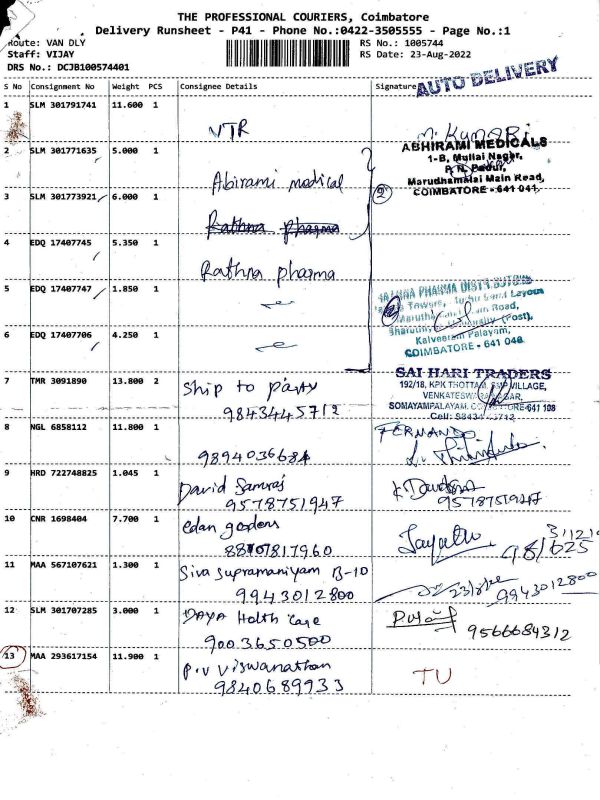 THE PROFESSIONAL COURIERS, Coimbatore
Delivery Runsheet - P41 - Phone No.:0422-3505555 - Page No.:1
Route: VAN DLY RS No.: 1005744
Staff: VIJAY RS Date: 23-Aug-2022
DRS No.: DCJB100574401
AUTO DELIVERY
S No Consignment No Weight PCS Consignee Details Signature
1 SLM 301791741 11.600 1 VTR
M. Kumari
2 SLM 301771635 5.000 1 Abirami medical
ABHIRAMI MEDICALS
1-B, Mullai Nagar,
P. N. Pudur,
Marudhamalai Main Road,
COIMBATORE - 641 041.
3 SLM 301773921 6.000 1 Rathna pharma
2
4 EDQ 17407745 5.350 1 Rathna pharma
5 EDQ 17407747 1.850 1
RATHNA PHARMA DISTRIBUTORS
Road,
(Post),
Kalveeram Palayam,
COIMBATORE - 641 046
6 EDQ 17407706 4.250 1
7 TMR 3091890 13.800 2 Ship to party
9843445712
SAI HARI TRADERS
192/18, KPK THOTTAM, SMP VILLAGE,
VENKATESWARA NAGAR,
SOMAYAMPALAYAM, COIMBATORE-641 108
Cell:
8 NGL 6858112 11.800 1
9894036684
FERNANDO
9 HRD 722748825 1.045 1 David Samraj
9578751947
9578751947
10 CNR 1698404 7.700 1 edan gardens
8870817960
11 MAA 567107621 1.300 1 Siva Supramaniyam B-10
9943012800
23/8/22
9943012800
12 SLM 301707285 3.000 1 DAYA Halth Care
9003650500
9566684312
13 MAA 293617154 11.900 1 P.V Viswanathan
9840689933
TU